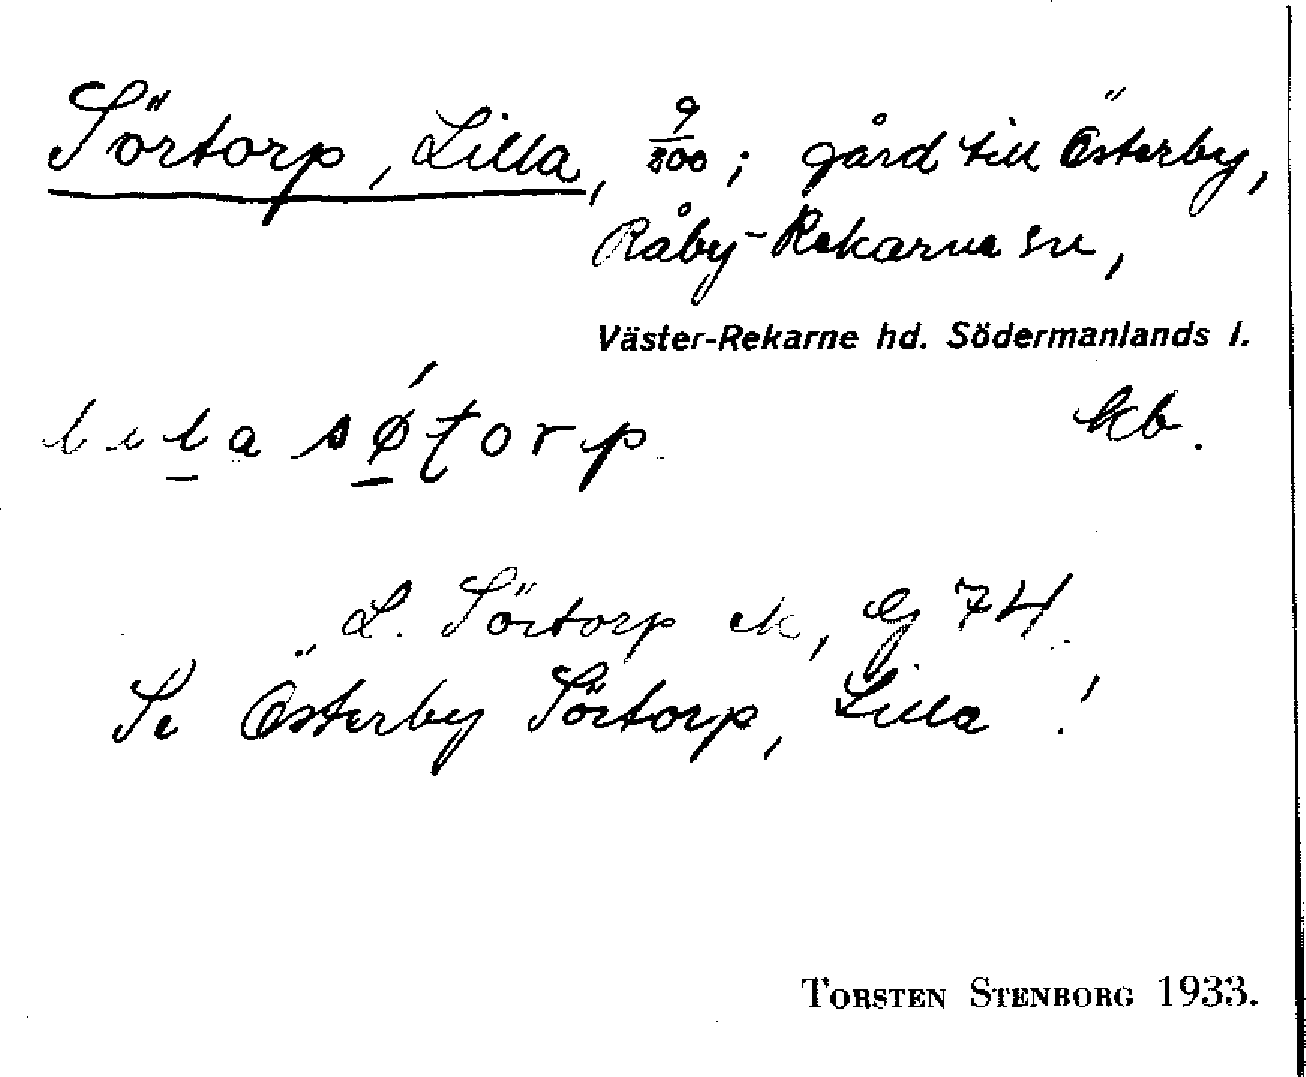 Sörtorp, Lilla, 9/800; gård till Österby,
Råby-Rekarne sn,
Väster-Rekarne hd. Södermanlands l.
kb.
L. Sörtorp ek, Gj 74.
Se Österby Sörtorp, Lilla!
TORSTEN STENBORG 1933.